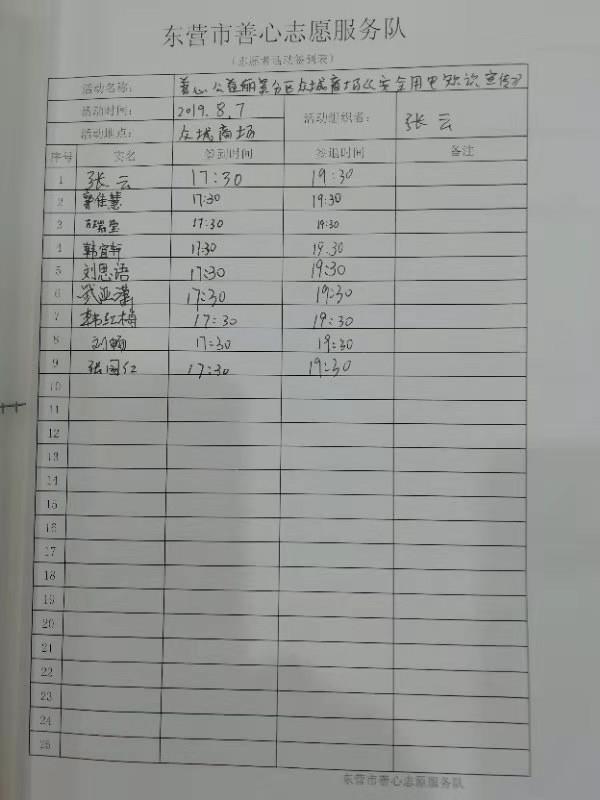 东营市善心志愿服务队
(志愿者活动签到表)
活动名称: 善心公益 分区众城商场《安全用电知识宣传》
活动时间: 2019.8.7 活动组织者: 张云
活动地点: 众城商场
序号 实名 签到时间 签退时间 备注
1 张云 17:30 19:30
2 佳慧 17:30 19:30
3 17:30 19:30
4 韩宜轩 17:30 19:30
5 刘思语 17:30 19:30
6 武亚 17:30 19:30
7 韩红梅 17:30 19:30
8 刘畅 17:30 19:30
9 张国仁 17:30 19:30
10
11
12
13
14
15
16
17
18
19
20
21
22
23
24
25
东营市善心志愿服务队